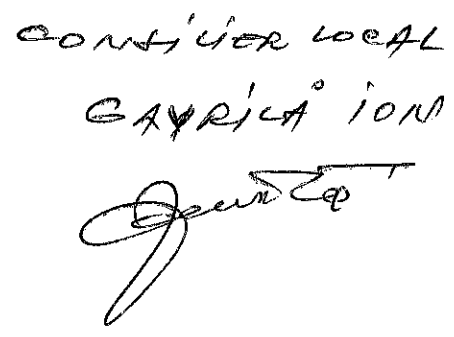 CONSILIER LOCAL
GAVRILĂ ION